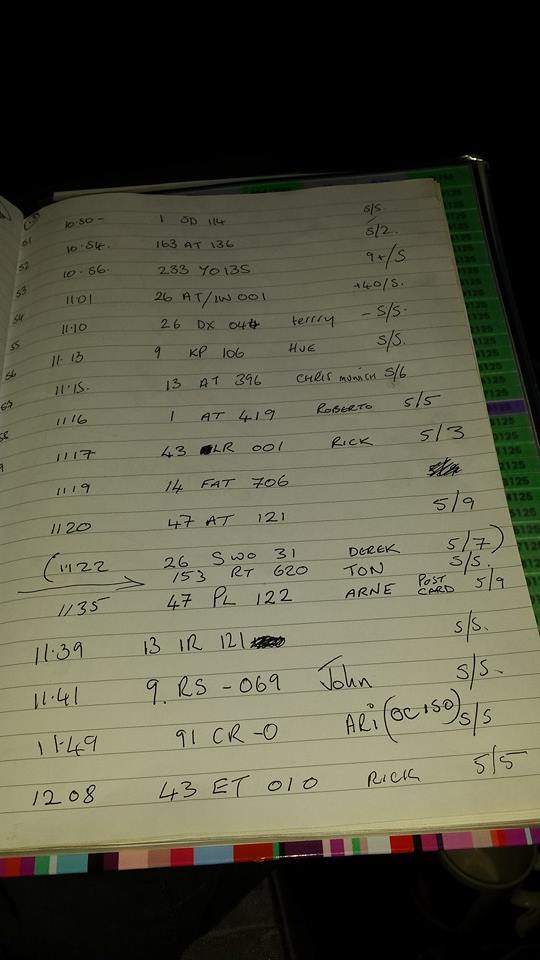 10.50- 1 SD 114 S/S.
51 10.54. 163 AT 136 5/2.
52 10.56. 233 YO135 9+/S
53 1101 26 AT/IW 001 +40/S.
54 11.10 26 DX 044 terrry - S/S.
55 11.13 9 KP 106 HUE S/S.
56 11.15. 13 AT 396 CHRIS MUNICH S/6
57 1116 1 AT 419 ROBERTO 5/5
58 1117 43 LR 001 RICK 5/3
1119 14 FAT 706
1120 47 AT 121 5/9
(11:22 26 SWO 31 DEREK 5/7)
153 RT 620 TON S/S.
1135 47 PL 122 ARNE POST CARD 5/9
11.39 13 IR 121 S/S.
11.41 9. RS -069 John S/S.
11.49 91 CR -0 ARi (OC150) S/S
1208 43 ET 010 RICK 5/5
125